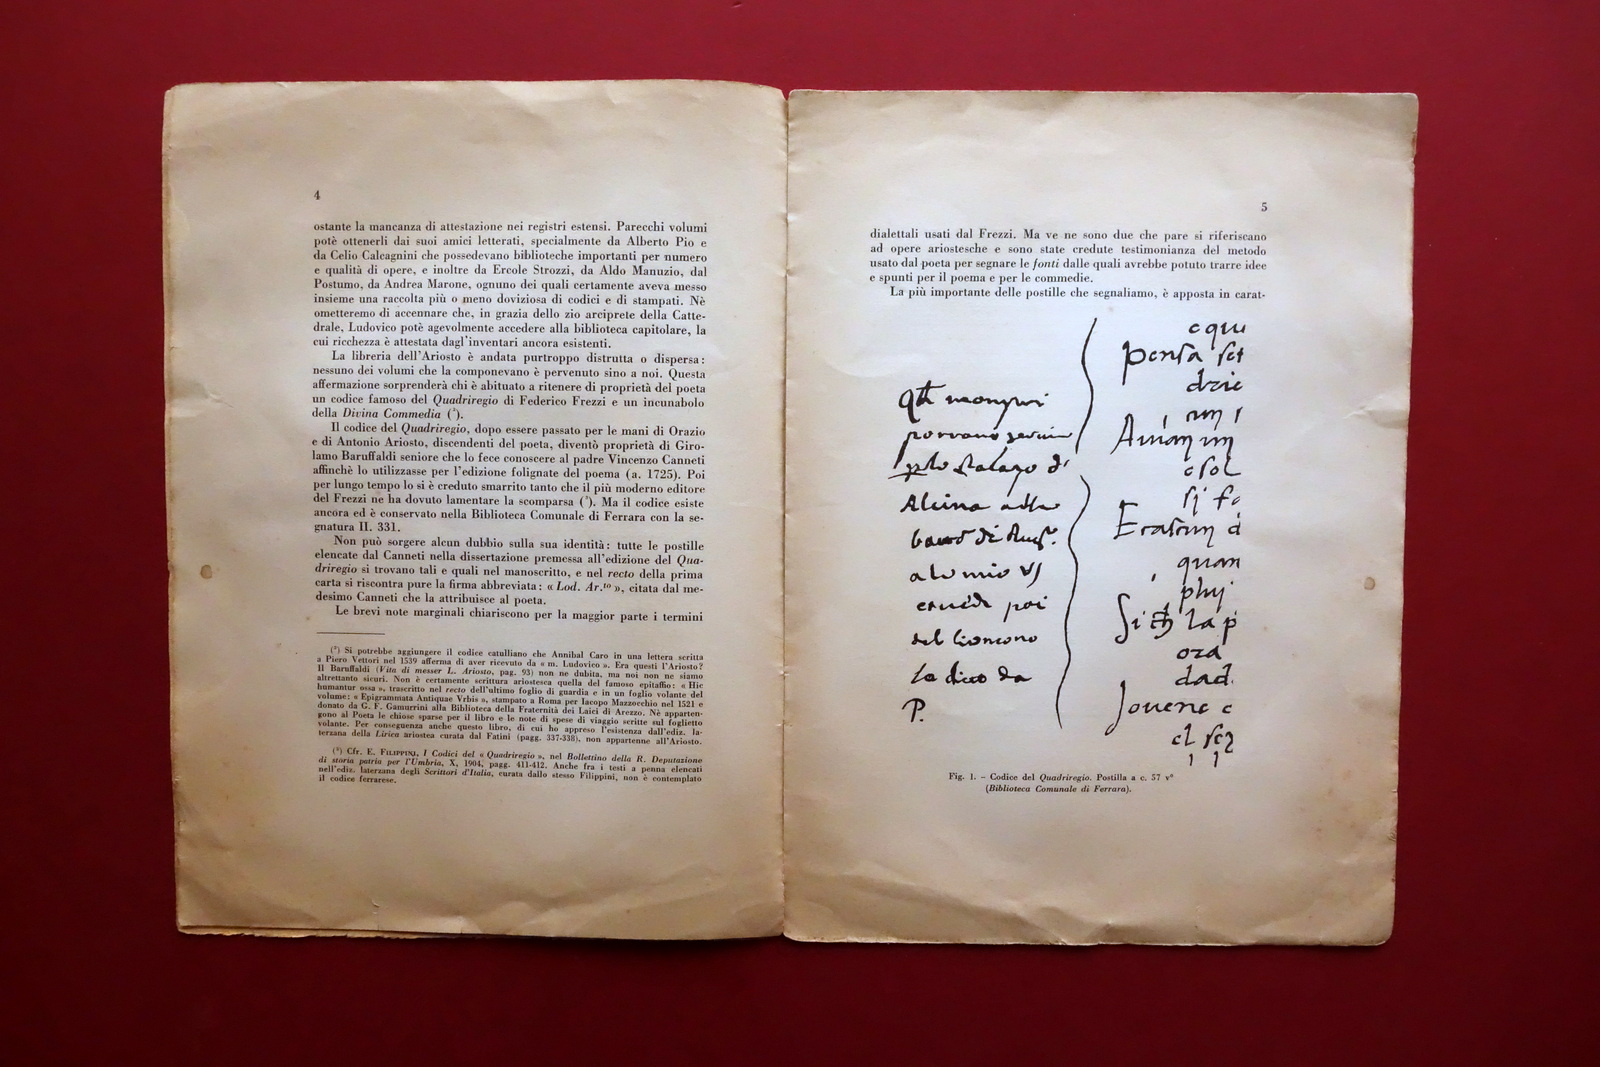 4
ostante la mancanza di attestazione nei registri estensi. Parecchi volumi
potè ottenerli dai suoi amici letterati, specialmente da Alberto Pio e
da Celio Calcagnini che possedevano biblioteche importanti per numero
e qualità di opere, e inoltre da Ercole Strozzi, da Aldo Manuzio, dal
Postumo, da Andrea Marone, ognuno dei quali certamente aveva messo
insieme una raccolta più o meno doviziosa di codici e di stampati. Nè
ometteremo di accennare che, in grazia dello zio arciprete della Catte-
drale, Ludovico potè agevolmente accedere alla biblioteca capitolare, la
cui ricchezza è attestata dagl'inventari ancora esistenti.
La libreria dell'Ariosto è andata purtroppo distrutta o dispersa:
nessuno dei volumi che la componevano è pervenuto sino a noi. Questa
affermazione sorprenderà chi è abituato a ritenere di proprietà del poeta
un codice famoso del Quadriregio di Federico Frezzi e un incunabolo
della Divina Commedia (²).
Il codice del Quadriregio, dopo essere passato per le mani di Orazio
e di Antonio Ariosto, discendenti del poeta, diventò proprietà di Giro-
lamo Baruffaldi seniore che lo fece conoscere al padre Vincenzo Canneti
affinchè lo utilizzasse per l'edizione folignate del poema (a. 1725). Poi
per lungo tempo lo si è creduto smarrito tanto che il più moderno editore
del Frezzi ne ha dovuto lamentare la scomparsa (³). Ma il codice esiste
ancora ed è conservato nella Biblioteca Comunale di Ferrara con la se-
gnatura II. 331.
Non può sorgere alcun dubbio sulla sua identità: tutte le postille
elencate dal Canneti nella dissertazione premessa all'edizione del Qua-
driregio si trovano tali e quali nel manoscritto, e nel recto della prima
carta si riscontra pure la firma abbreviata: « Lod. Ar.to », citata dal me-
desimo Canneti che la attribuisce al poeta.
Le brevi note marginali chiariscono per la maggior parte i termini
(²) Si potrebbe aggiungere il codice catulliano che Annibal Caro in una lettera scritta
a Piero Vettori nel 1539 afferma di aver ricevuto da « m. Ludovico ». Era questi l'Ariosto?
Il Baruffaldi (Vita di messer L. Ariosto, pag. 93) non ne dubita, ma noi non ne siamo
altrettanto sicuri. Non è certamente scrittura ariostesca quella del famoso epitaffio: « Hic
humantur ossa », trascritto nel recto dell'ultimo foglio di guardia e in un foglio volante del
volume: « Epigrammata Antiquae Vrbis », stampato a Roma per Iacopo Mazzocchio nel 1521 e
donato da G. F. Gamurrini alla Biblioteca della Fraternità dei Laici di Arezzo. Nè apparten-
gono al Poeta le chiose sparse per il libro e le note di spese di viaggio scritte sul foglietto
volante. Per conseguenza anche questo libro, di cui ho appreso l'esistenza dall'ediz. la-
terzana della Lirica ariostea curata dal Fatini (pagg. 337-338), non appartenne all'Ariosto.
(³) Cfr. E. FILIPPINI, I Codici del « Quadriregio », nel Bollettino della R. Deputazione
di storia patria per l'Umbria, X, 1904, pagg. 411-412. Anche fra i testi a penna elencati
nell'ediz. laterzana degli Scrittori d'Italia, curata dallo stesso Filippini, non è contemplato
il codice ferrarese.
5
dialettali usati dal Frezzi. Ma ve ne sono due che pare si riferiscano
ad opere ariostesche e sono state credute testimonianza del metodo
usato dal poeta per segnare le fonti dalle quali avrebbe potuto trarre idee
e spunti per il poema e per le commedie.
La più importante delle postille che segnaliamo, è apposta in carat-
Alcina
al mio
poi
del
lo dico da
P.
quan
phy
la p
ora
dad
Jouene
Fig. 1. - Codice del Quadriregio. Postilla a c. 57 v°
(Biblioteca Comunale di Ferrara).